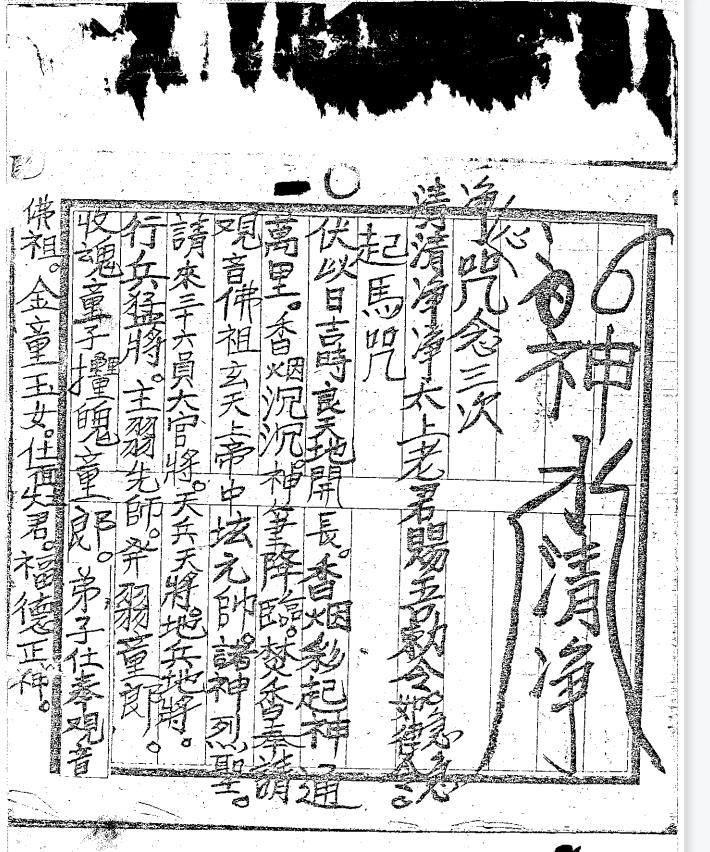 神水清净
净咒念三次
清清净净太上老君賜吾勅令急急如律令
起馬咒
伏以日吉時良天地開長。香烟彩起神通
萬里。香烟沉沉。神筆降臨。焚香奉請
观音佛祖玄天上帝中坛元帥。諸神烈聖。
請來三十六員大官將。天兵天將。地兵地將。
行兵猛將。主翖先師。発翖童郎。
收魂童子攆魄童郎。弟子仕奉观音
佛祖。金童玉女。君。福德正神。